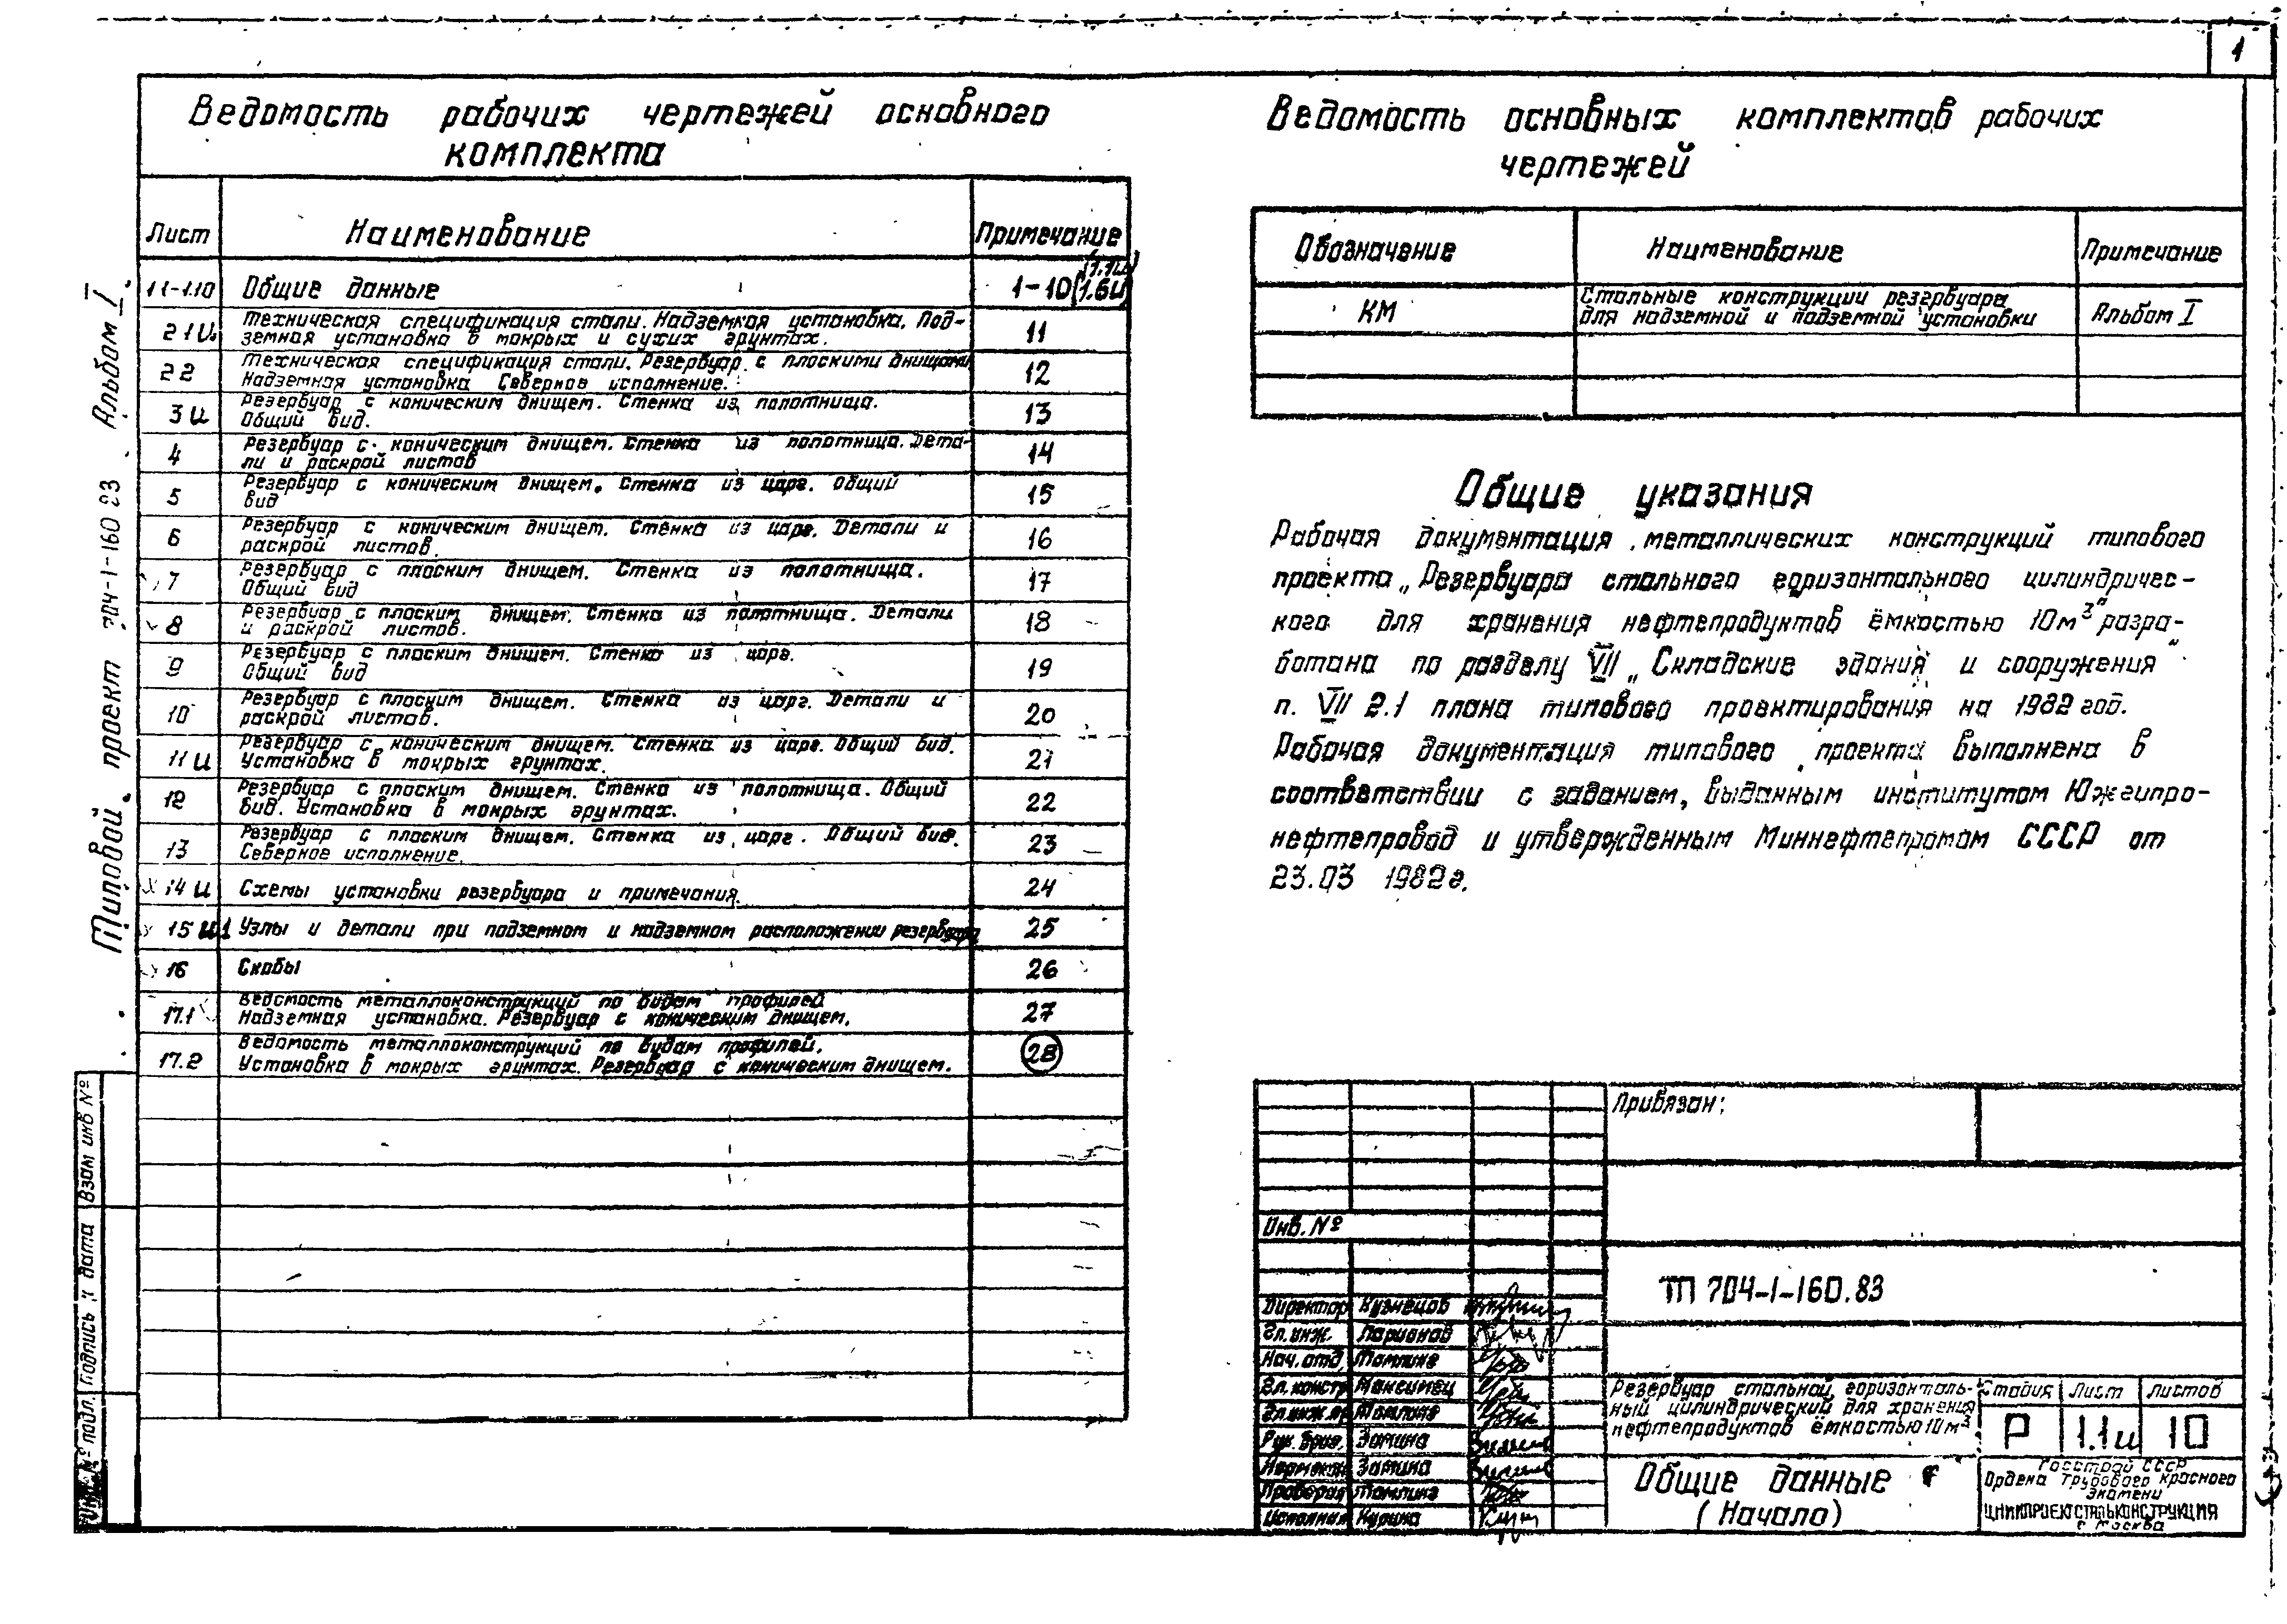 1
Ведомость рабочих чертежей основного
комплекта
Лист Наименование Примечание
1.1-1.10 Общие данные 1-10 (1.1и) (1.6и)
2.1и Техническая спецификация стали. Надземная установка. Под-
земная установка в мокрых и сухих грунтах. 11
2.2 Техническая спецификация стали. Резервуар с плоскими днищами
Надземная установка Северное исполнение. 12
3и Резервуар с коническим днищем. Стенка из полотнища.
Общий вид. 13
4 Резервуар с коническим днищем. Стенка из полотнища. Дета-
ли и раскрой листов 14
5 Резервуар с коническим днищем. Стенка из царг. Общий
вид 15
6 Резервуар с коническим днищем. Стенка из царг. Детали и
раскрой листов. 16
7 Резервуар с плоским днищем. Стенка из полотнища.
Общий вид 17
8 Резервуар с плоским днищем. Стенка из полотнища. Детали
и раскрой листов. 18
9 Резервуар с плоским днищем. Стенка из царг.
Общий вид 19
10 Резервуар с плоским днищем. Стенка из царг. Детали и
раскрой листов. 20
11и Резервуар с коническим днищем. Стенка из царг. Общий вид.
Установка в мокрых грунтах. 21
12 Резервуар с плоским днищем. Стенка из полотнища. Общий
вид. Установка в мокрых грунтах. 22
13 Резервуар с плоским днищем. Стенка из царг. Общий вид.
Северное исполнение. 23
14и Схемы установки резервуара и примечания. 24
15и1 Узлы и детали при подземном и надземном расположении резервуара 25
16 Скобы 26
17.1 Ведомость металлоконструкций по видам профилей
Надземная установка. Резервуар с коническим днищем. 27
17.2 Ведомость металлоконструкций по видам профилей.
Установка в мокрых грунтах. Резервуар с коническим днищем. 28
Типовой проект 704-1-160 83 Альбом I
Взам инв №
Подпись и дата
Инв. № подл.
Ведомость основных комплектов рабочих
чертежей
Обозначение Наименование Примечание
КМ Стальные конструкции резервуара
для надземной и подземной установки Альбом I
Общие указания
Рабочая документация металлических конструкций типового
проекта „Резервуара стального горизонтального цилиндричес-
кого для хранения нефтепродуктов ёмкостью 10м³" разра-
ботана по разделу VII „Складские здания и сооружения"
п. VII 2.1 плана типового проектирования на 1982 год.
Рабочая документация типового проекта выполнена в
соответствии с заданием, выданным институтом Южгипро-
нефтепровод и утвержденным Миннефтепромом СССР от
23.03 1982г.
Привязан:
Инв. №
ТП 704-1-160.83
Директор Кузнецов
Гл. инж. Ларионов
Нач. отд. Томлина
Гл. констр Максимец
Гл. инж. пр Томлина
Рук. бриг. Зотина
Нормокон Зотина
Проверил Томлина
Исполнил
Резервуар стальной горизонталь-
ный цилиндрический для хранения
нефтепродуктов ёмкостью 10м³
Стадия Лист Листов
Р 1.1и 10
Общие данные
(Начало)
Госстрой СССР
Ордена Трудового Красного
Знамени
ЦНИИПРОЕКТСТАЛЬКОНСТРУКЦИЯ
г Москва